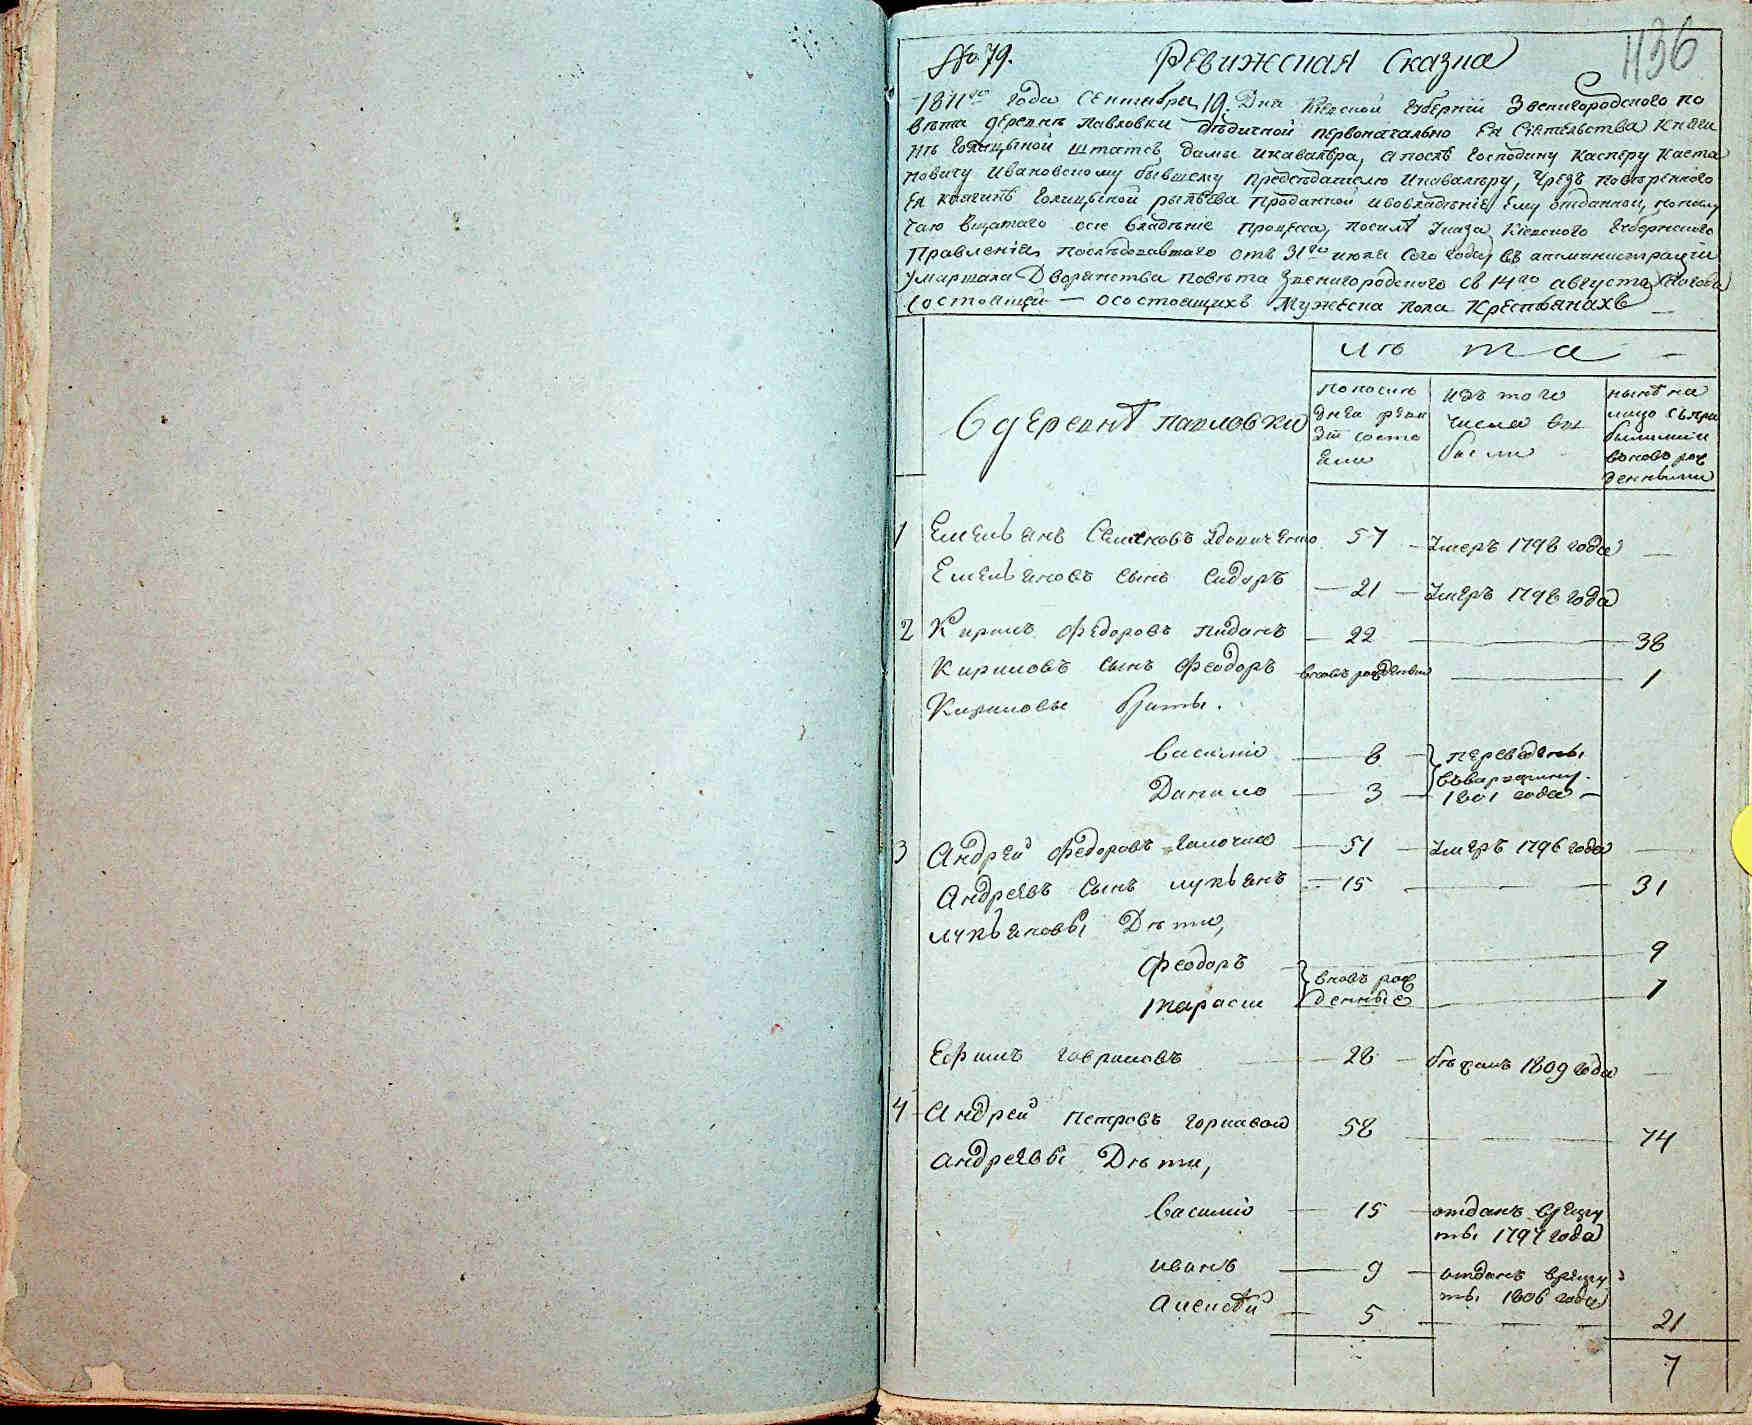 1136
№ 79. Ревижская Сказка
1811го года Сентября 19. Дня Киевской Губернии Звенигородского по
вета деревне Павловки дедичной первоначально Ея Сиятельства Княги
не Голицыной штатсъ Дамы и кавалера, а после Господину Касперу Каета
новичу Ивановскому бывшему Председателю и кавалеру, чрезъ поверенного
Ея княгине Голицыной Рылеева проданной и во владение Ему отданной, по
процесса, по силе Указа Киевского Губернского
Правления последовавшаго отъ 31го июля сего года въ администрации
у маршала Дворянства повета Звенигородского съ 14го августа
состоящей — о состоящихъ Мужеска пола Крестьянахъ —
Въ деревне Павловки
Лѣта —
по последнea реви
зіи состо
яли
изъ того
числа вы
были
ныне на
лицо съ при
былыми и
вновь рож
денными
1 Емельянъ Семеновъ 57 — умеръ 1798 года —
Емельяновъ сынъ Сидоръ — 21 — умеръ 1798 года
2 Кирилъ Федоровъ — 22 — 38
Кириловъ сынъ Феодоръ вновь рожденный — 1
Кириловы браты.
Василий — 8 — переведены
Данило — 3 — 1801 года —
3 Андрей Федоровъ — 51 — умеръ 1796 года —
Андреевъ Сынъ Лукьянъ — 15 — 31
Лукьяновы Дети,
Феодоръ — вновь рож 9
Тарасъ денные — 1
Ефимъ Гавриловъ — 28 — бежалъ 1809 года —
4 Андрей Петровъ 58 — 74
Андреевы Дети,
Василий — 15 — отданъ в рекру
ты 1797 года
Иванъ — 9 — отданъ в рекру
ты 1806 года
Алексей — 5 — 21
7